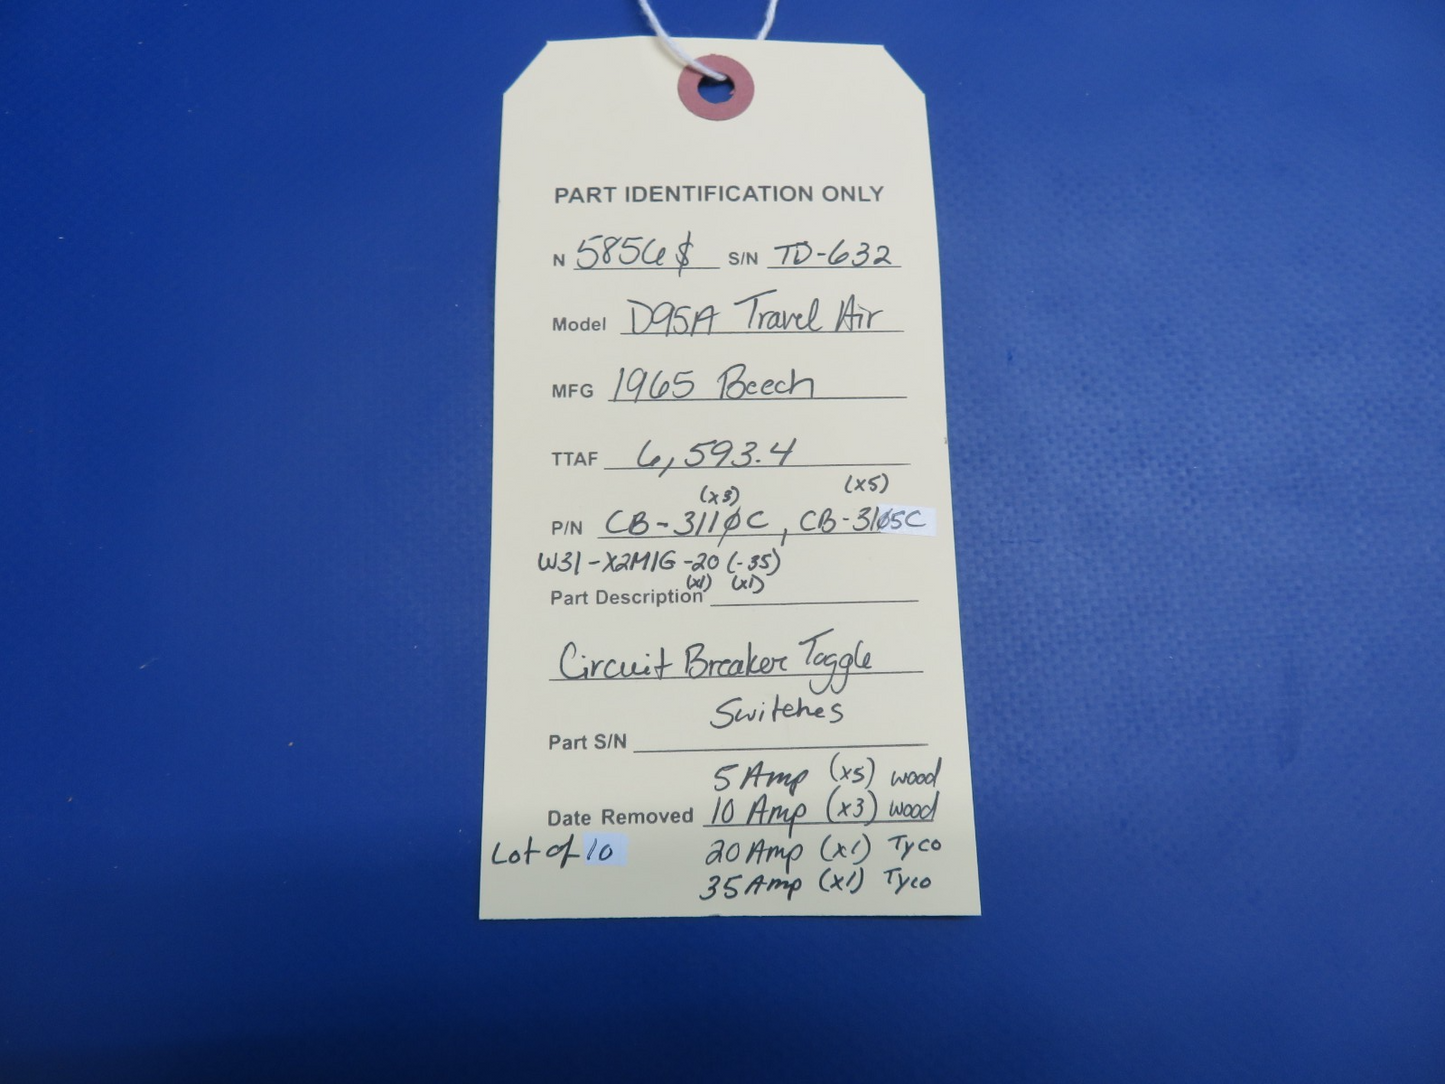 PART IDENTIFICATION ONLY
N 5856$ S/N TD-632
Model D95A Travel Air
MFG 1965 Beech
TTAF 6,593.4
(x3) (x5)
P/N CB-3110C, CB-3105C
W31-X2M1G-20 (-35)
(x1) (x1)
Part Description
Circuit Breaker Toggle
Switches
Part S/N
5 Amp (x5) wood
Date Removed 10 Amp (x3) wood
Lot of 10 20 Amp (x1) Tyco
35 Amp (x1) Tyco